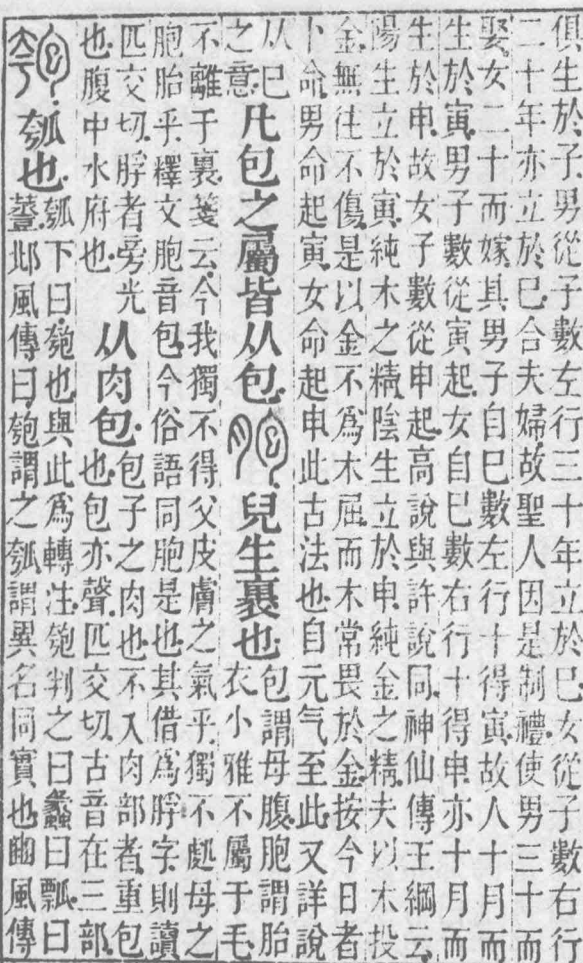 俱生於子.男從子數左行三十年立於巳.女從子數右行
二十年亦立於巳.合夫婦.故聖人因是制禮.使男三十而
娶.女二十而嫁.其男子自巳數左行十得寅.故人十月而
生於寅.男子數從寅起.女自巳數右行十得申.亦十月而
生於申.故女子數從申起.高說與許說同.神仙傳王綱云.
陽生立於寅.純木之精.陰生立於申.純金之精.夫以木投
金.無往不傷.是以金不爲木屈.而木常畏於金.按今日者
卜命.男命起寅.女命起申.此古法也.自元气至此.又詳說
从巳之意.凡包之屬皆从包.胞兒生裹也.包謂母腹.胞謂胎衣.小雅.不屬于毛.
不離于裏.箋云.今我獨不得父皮膚之氣乎.獨不処母之
胞胎乎.釋文.胞音包.今俗語同胞是也.其借爲脬字.則讀
匹交切.脬者.旁光也.腹中水府也.从肉包.包子之肉也.不入肉部者.重包也.包亦聲.匹交切.古音在三部.
匏瓠也.瓠下曰.匏也.與此爲轉注.匏判之曰蠡.曰瓢.曰邶風傳曰.匏謂之瓠.謂異名同實也.豳風傳